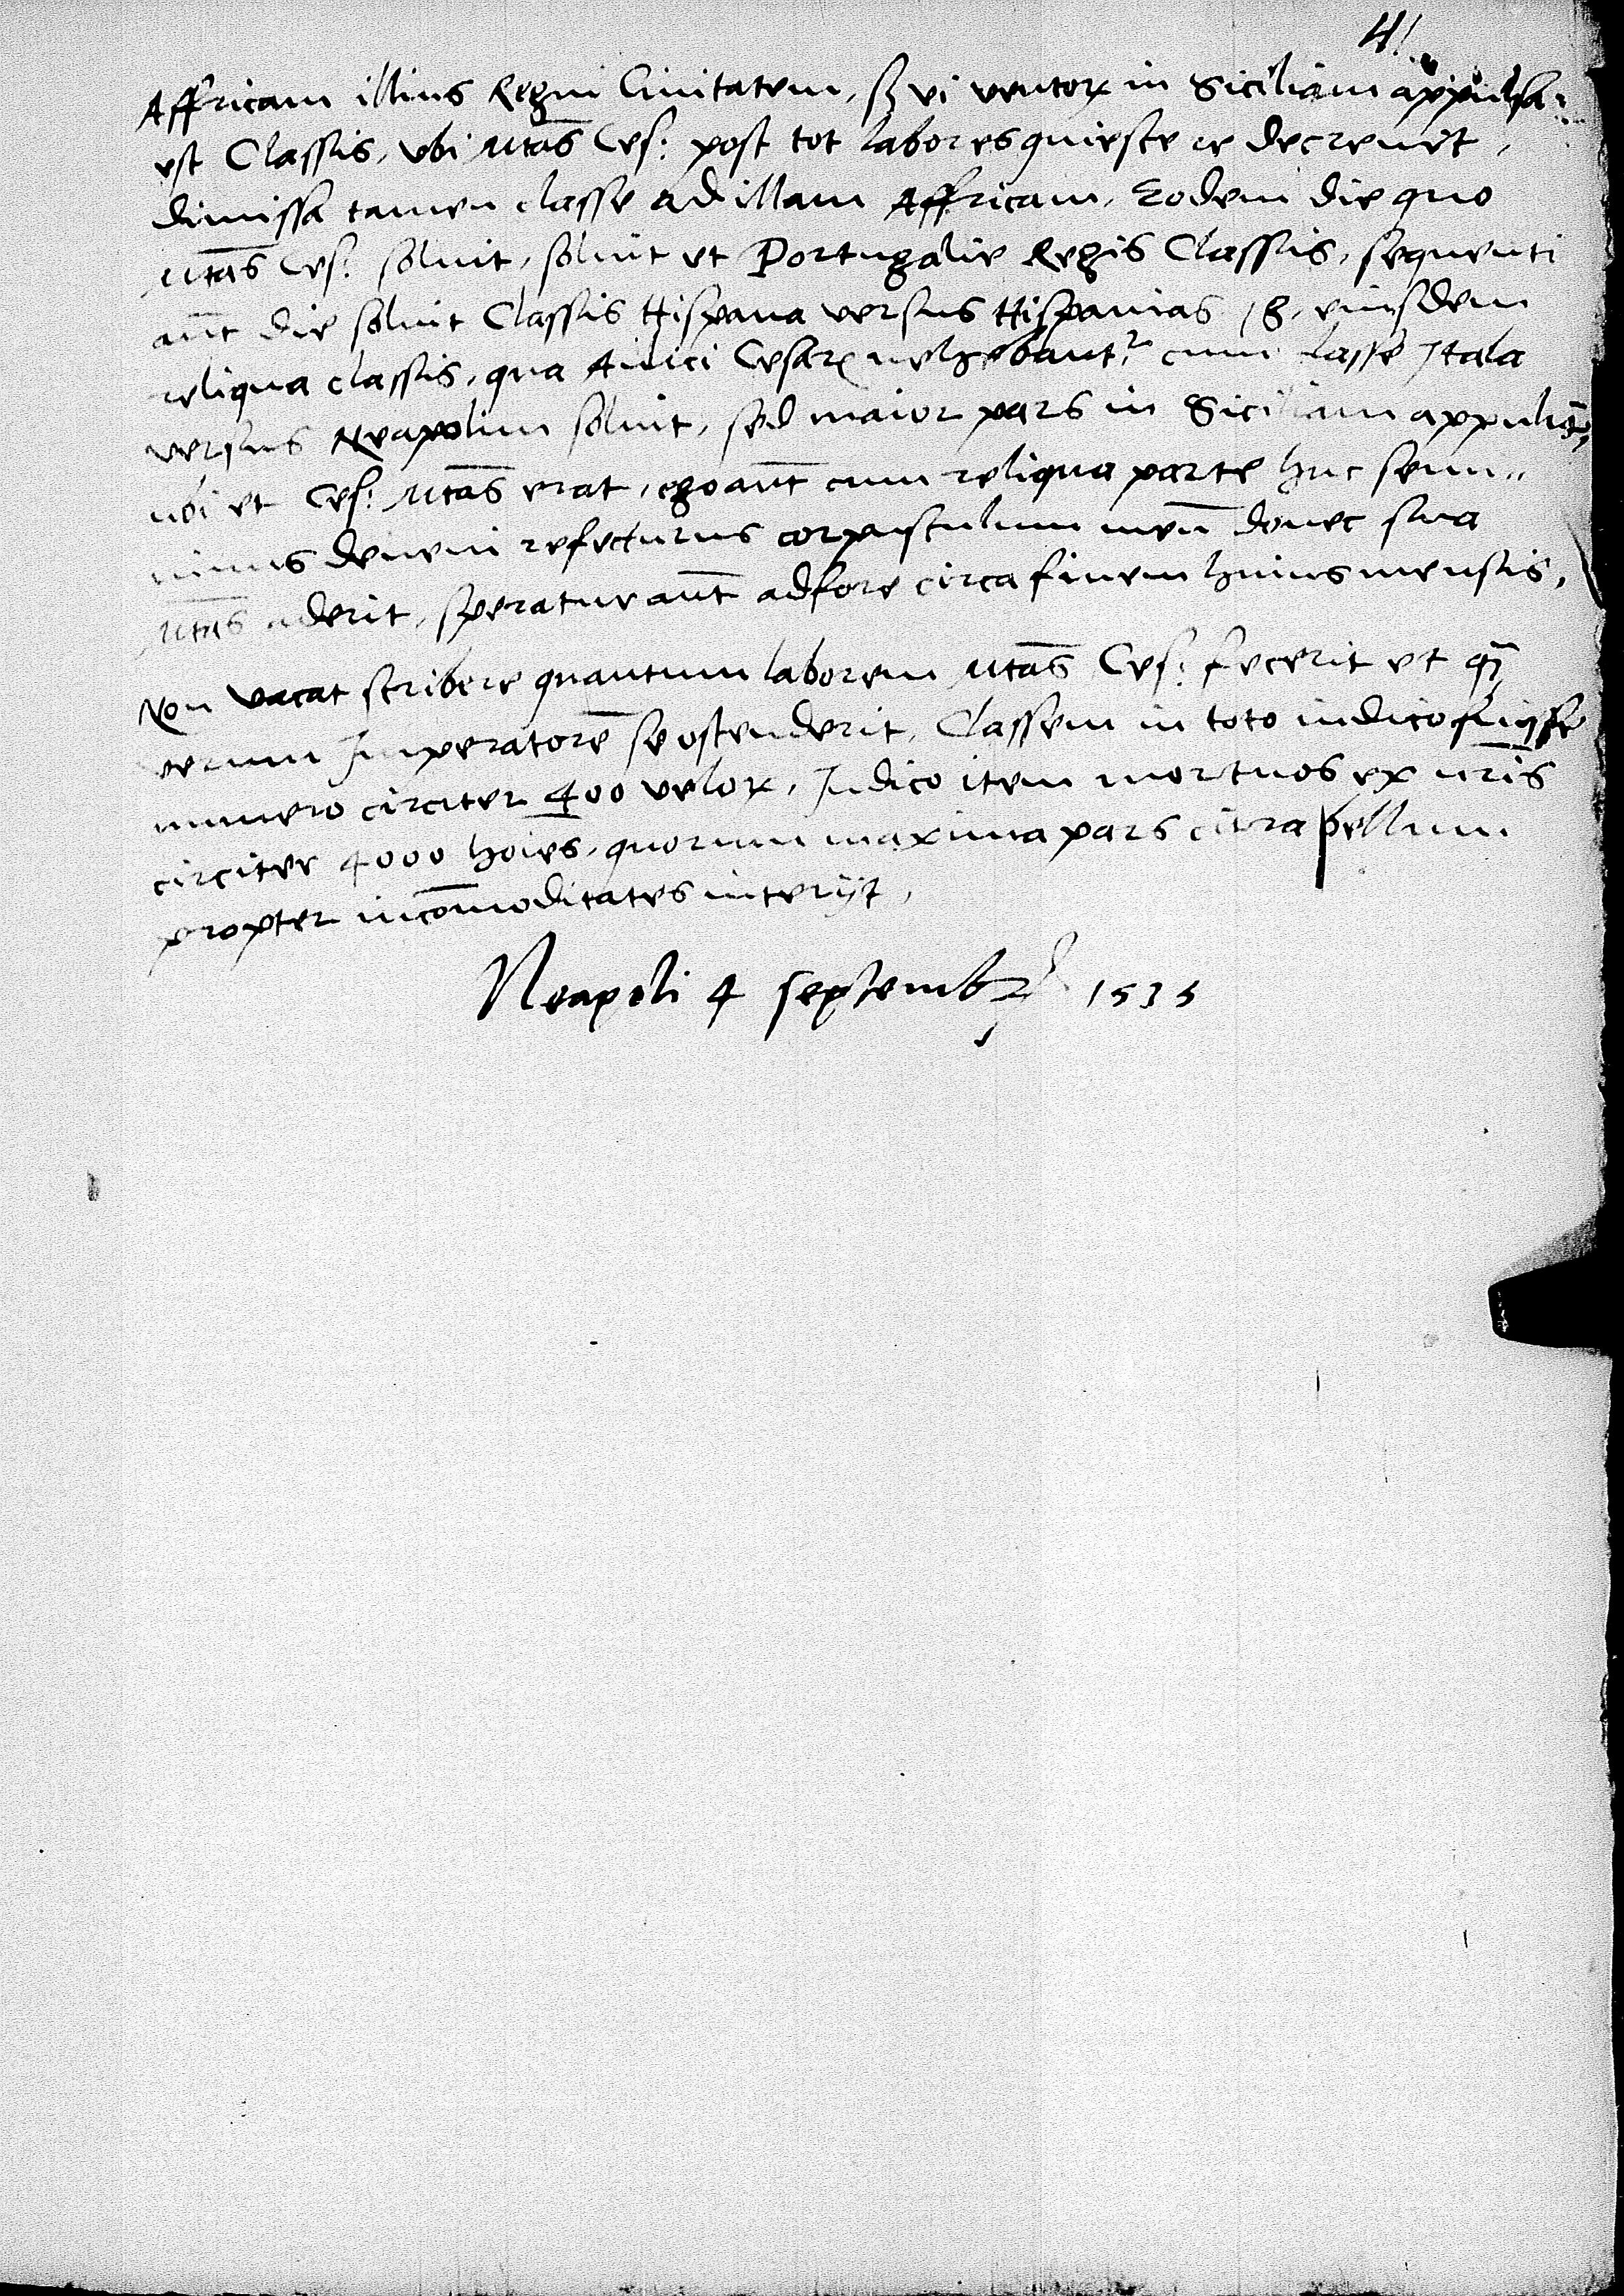 4!
Affricam illius Regni Ciuitatem, sꝫ vi ventoꝝ in Siciliam appulsa
est Classis, vbi Mtas̄ Ces: post tot labores quiescere decreuit,
dimissa tamen classe ad illam Affricam, Eodem die quo
Mtas̄ Ces: soluit, soluit et Portugalie Regis Classis, sequenti
aūt die soluit Classis Hispana versus Hispanias, 18, eiusdem
reliqua classis, qua Aulici Cesarꝭ vehebantʳ cum classe Itala
versus Neapolim soluit, sed maior pars in Siciliam appulit,
vbi et Ces: Mtas̄ erat, ego aūt cum reliqua parte huc semi„
uiuus deueni refecturus corpusculum meū donec sua
Mtas̄ aderit, speratur aūt adfore circa finem huius mensis,
Non vacat scribere quantum laborem Mtas̄ Ces: fecerit et q̄
verum Imperatorē se ostenderit, Classem in toto iudico fuisse
numero circiter 400 veloꝝ, Iudico item mortuos ex nrīs
circiter 4000 hoīes, quorum maxima pars citra bellum
propter incōmoditates interijt,
Neapoli 4 septembꝝ 1535